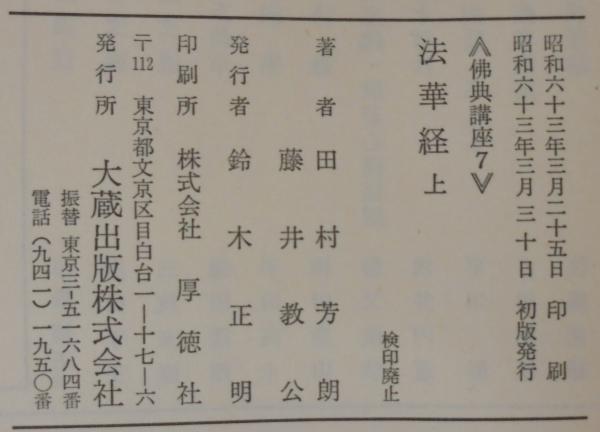 昭和六十三年三月二十五日 印刷
昭和六十三年三月三十日 初版発行
《佛典講座7》
法華経 上
検印廃止
著者 田村芳朗
藤井教公
発行者 鈴木正明
印刷所 株式会社 厚徳社
〒112 東京都文京区目白台一ー十七ー六
発行所 大蔵出版株式会社
振替 東京三-五一六八四番
電話（九四一）一九五〇番